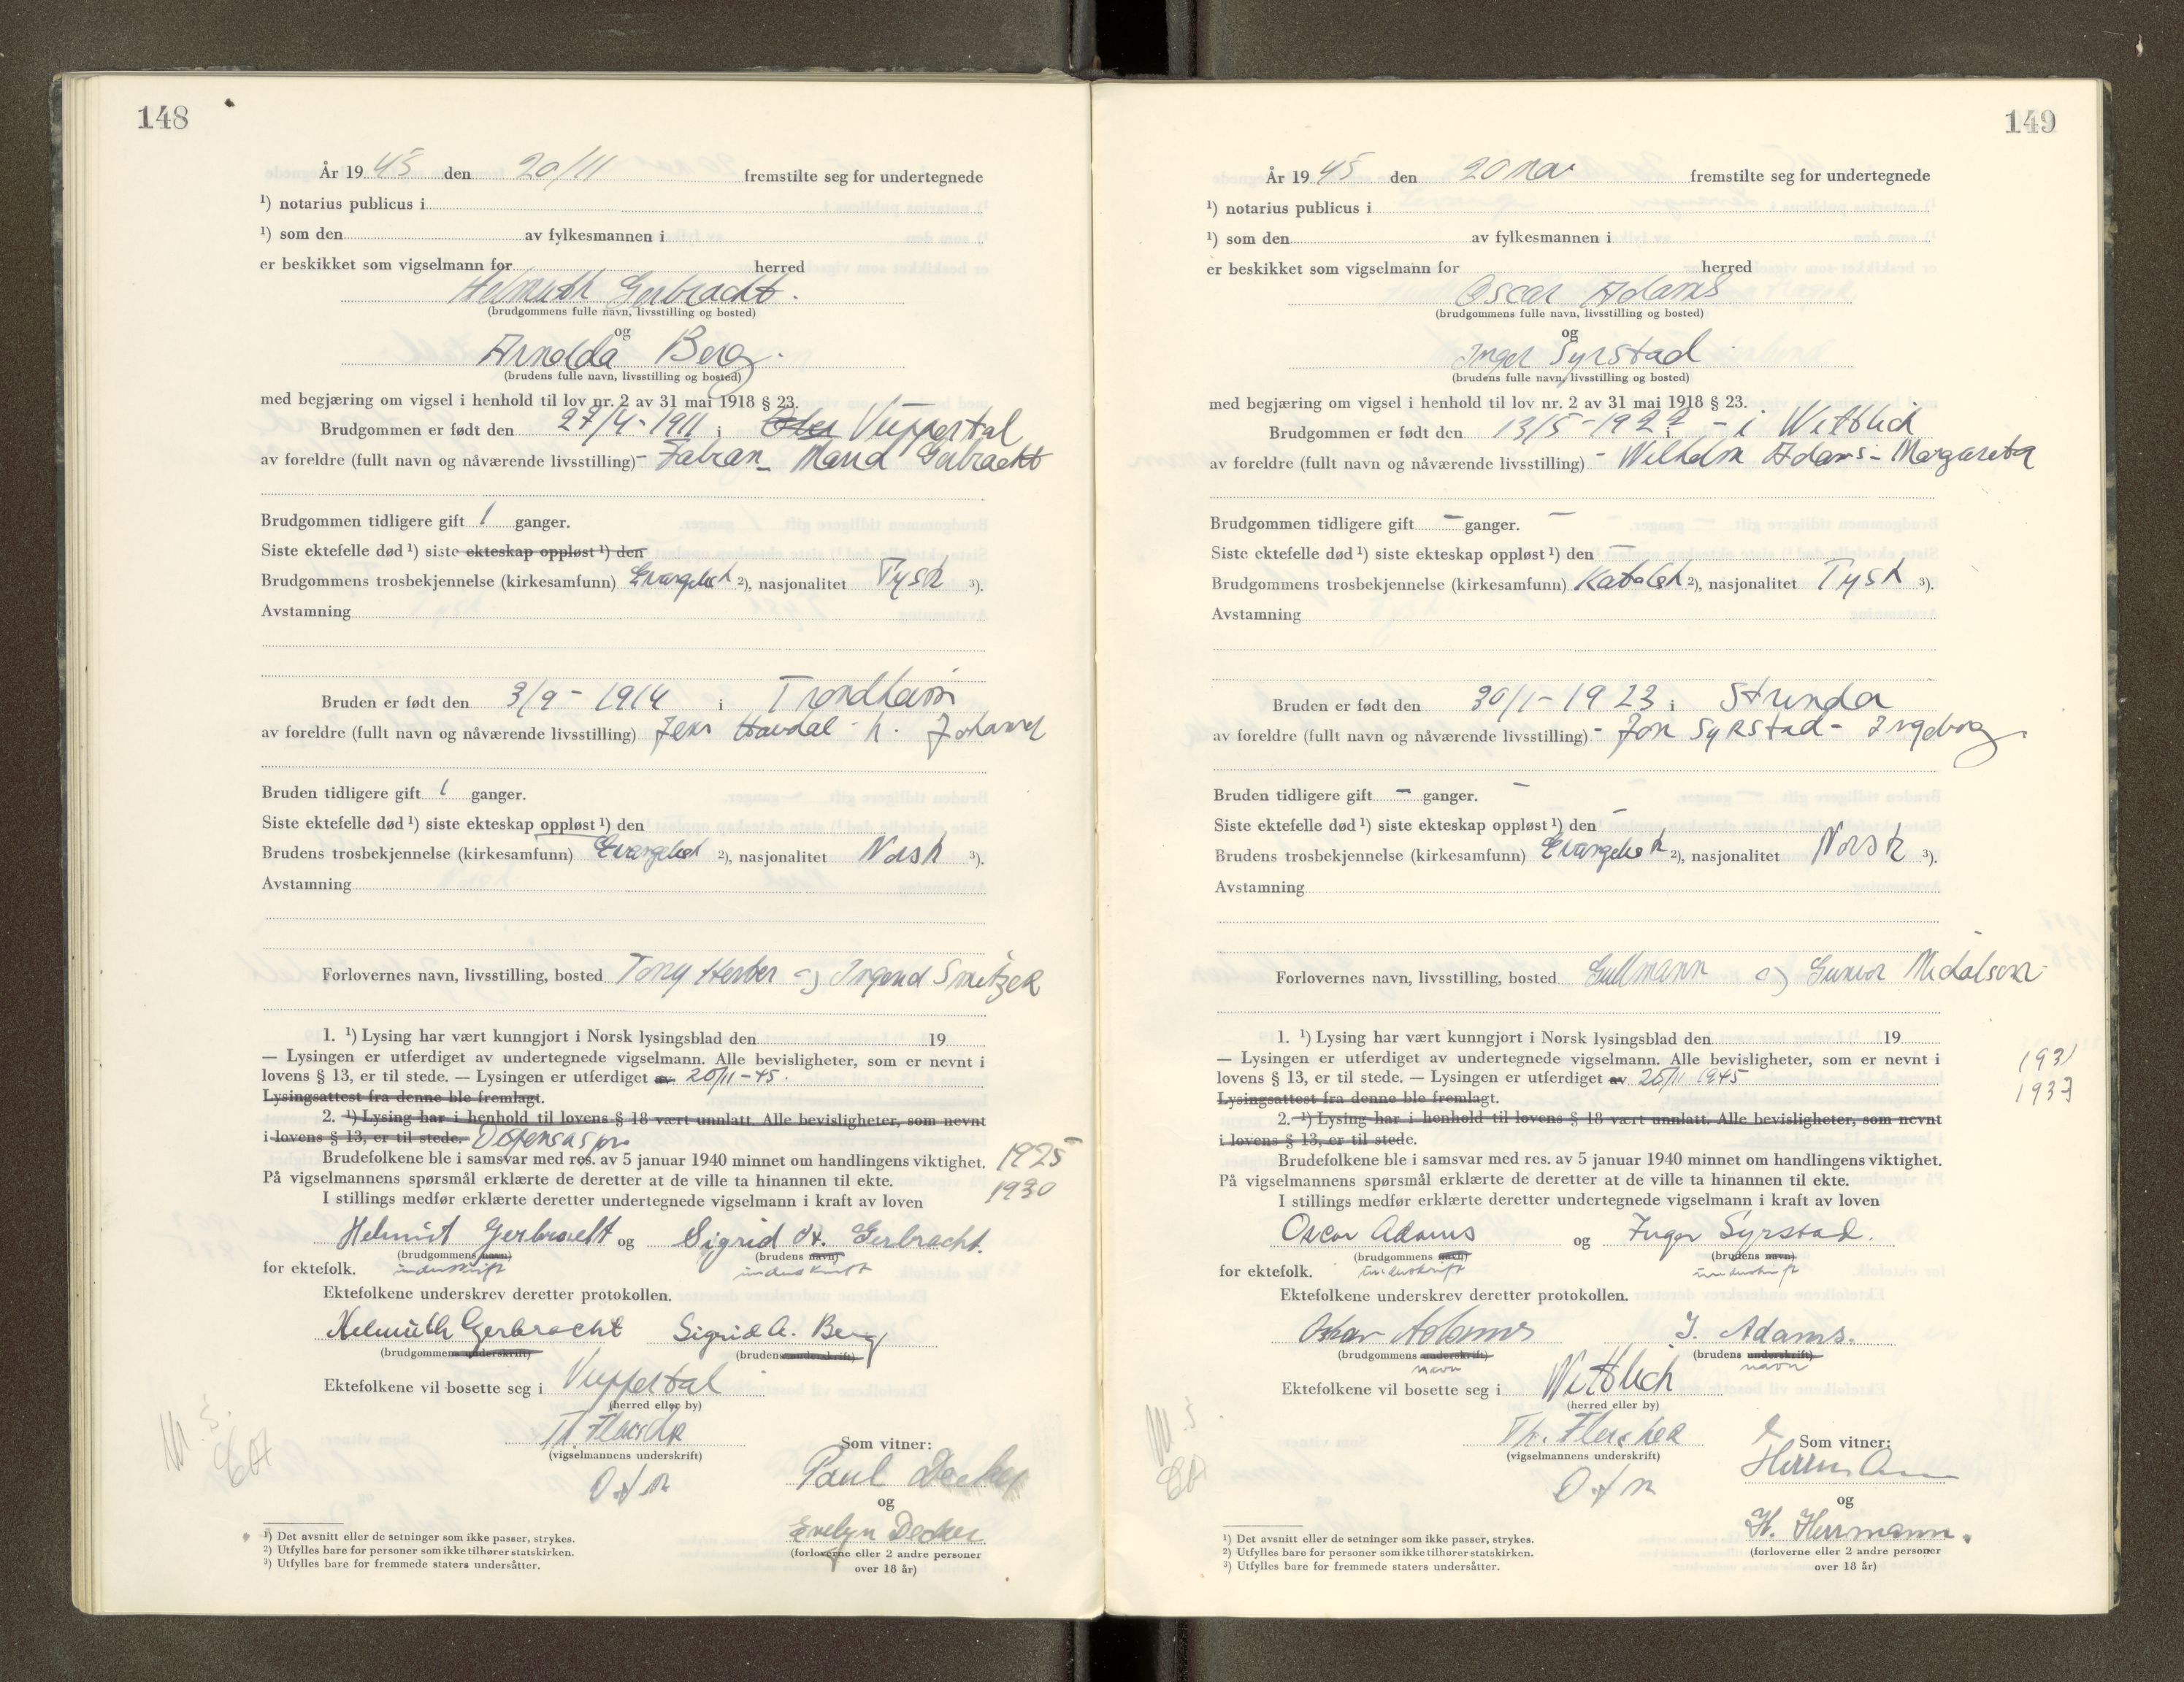 148
År 19 45 den 20/11 fremstilte seg for undertegnede
¹) notarius publicus i
¹) som den av fylkesmannen i
er beskikket som vigselmann for herred
Helmuth Gerbracht.
(brudgommens fulle navn, livsstilling og bosted)
og
Arnolda Berg.
(brudens fulle navn, livsstilling og bosted)
med begjæring om vigsel i henhold til lov nr. 2 av 31 mai 1918 § 23.
Brudgommen er født den 27/4-1911 i Vuppertal
av foreldre (fullt navn og nåværende livsstilling) - Gerbracht
Brudgommen tidligere gift 1 ganger.
Siste ektefelle død ¹) siste ekteskap oppløst ¹) den
Brudgommens trosbekjennelse (kirkesamfunn) Evangelisk ²), nasjonalitet Tysk ³).
Avstamning
Bruden er født den 3/9 - 1914 i Trondheim
av foreldre (fullt navn og nåværende livsstilling) Jens
Bruden tidligere gift 1 ganger.
Siste ektefelle død ¹) siste ekteskap oppløst ¹) den
Brudens trosbekjennelse (kirkesamfunn) Evangelisk ²), nasjonalitet Norsk ³).
Avstamning
Forlovernes navn, livsstilling, bosted Tony Herber og
1. ¹) Lysing har vært kunngjort i Norsk lysingsblad den 19
— Lysingen er utferdiget av undertegnede vigselmann. Alle bevisligheter, som er nevnt i
lovens § 13, er til stede. — Lysingen er utferdiget av 20/11-45.
Lysingsattest fra denne ble fremlagt.
2. ¹) Lysing har i henhold til lovens § 18 vært unnlatt. Alle bevisligheter, som nevnt
i lovens § 13, er til stede.
Brudefolkene ble i samsvar med res. av 5 januar 1940 minnet om handlingens viktighet. 1925
På vigselmannens spørsmål erklærte de deretter at de ville ta hinannen til ekte. 1930
I stillings medfør erklærte deretter undertegnede vigselmann i kraft av loven
Helmut Gerbracht og Sigrid A. Gerbracht.
(brudgommens navn) (brudens navn)
for ektefolk. underskrift underskrift
Ektefolkene underskrev deretter protokollen.
Helmuth Gerbracht Sigrid A. Berg
(brudgommens underskrift) (brudens underskrift)
Ektefolkene vil bosette seg i Vuppertal
(herred eller by)
(vigselmannens underskrift)
Som vitner:
Paul Decker
og
Evelyn Decker
(forloverne eller 2 andre personer
over 18 år)
¹) Det avsnitt eller de setninger som ikke passer, strykes.
²) Utfylles bare for personer som ikke tilhører statskirken.
³) Utfylles bare for fremmede staters undersåtter.
149
År 19 45 den 20 nov fremstilte seg for undertegnede
¹) notarius publicus i
¹) som den av fylkesmannen i
er beskikket som vigselmann for herred
Oscar Adams
(brudgommens fulle navn, livsstilling og bosted)
og
Inger Syrstad
(brudens fulle navn, livsstilling og bosted)
med begjæring om vigsel i henhold til lov nr. 2 av 31 mai 1918 § 23.
Brudgommen er født den 13/5-1922 - i Wittlich
av foreldre (fullt navn og nåværende livsstilling) - Wilhelm Adams - Margareta
Brudgommen tidligere gift - ganger. -
Siste ektefelle død ¹) siste ekteskap oppløst ¹) den -
Brudgommens trosbekjennelse (kirkesamfunn) Katolsk ²), nasjonalitet Tysk ³).
Avstamning
Bruden er født den 30/1-1923 i Strinda
av foreldre (fullt navn og nåværende livsstilling) - Jon Syrstad - Ingeborg
Bruden tidligere gift - ganger. -
Siste ektefelle død ¹) siste ekteskap oppløst ¹) den -
Brudens trosbekjennelse (kirkesamfunn) Evangelisk ²), nasjonalitet Norsk ³).
Avstamning
Forlovernes navn, livsstilling, bosted Gullmann og Gunvor
1. ¹) Lysing har vært kunngjort i Norsk lysingsblad den 19
— Lysingen er utferdiget av undertegnede vigselmann. Alle bevisligheter, som er nevnt i 1931
lovens § 13, er til stede. — Lysingen er utferdiget av 20/11 1945
1933
Lysingsattest fra denne ble fremlagt.
2. ¹) Lysing har i henhold til lovens § 18 vært unnlatt. Alle bevisligheter, som nevnt
i lovens § 13, er til stede.
Brudefolkene ble i samsvar med res. av 5 januar 1940 minnet om handlingens viktighet.
På vigselmannens spørsmål erklærte de deretter at de ville ta hinannen til ekte.
I stillings medfør erklærte deretter undertegnede vigselmann i kraft av loven
Oscar Adams og Inger Syrstad.
(brudgommens navn) (brudens navn)
for ektefolk. underskrift underskrift
Ektefolkene underskrev deretter protokollen.
Oskar Adams I. Adams.
(brudgommens underskrift) (brudens underskrift)
navn navn
Ektefolkene vil bosette seg i Wittlich
(herred eller by)
(vigselmannens underskrift)
Som vitner:
og
H. Herrmann.
(forloverne eller 2 andre personer
over 18 år)
¹) Det avsnitt eller de setninger som ikke passer, strykes.
²) Utfylles bare for personer som ikke tilhører statskirken.
³) Utfylles bare for fremmede staters undersåtter.